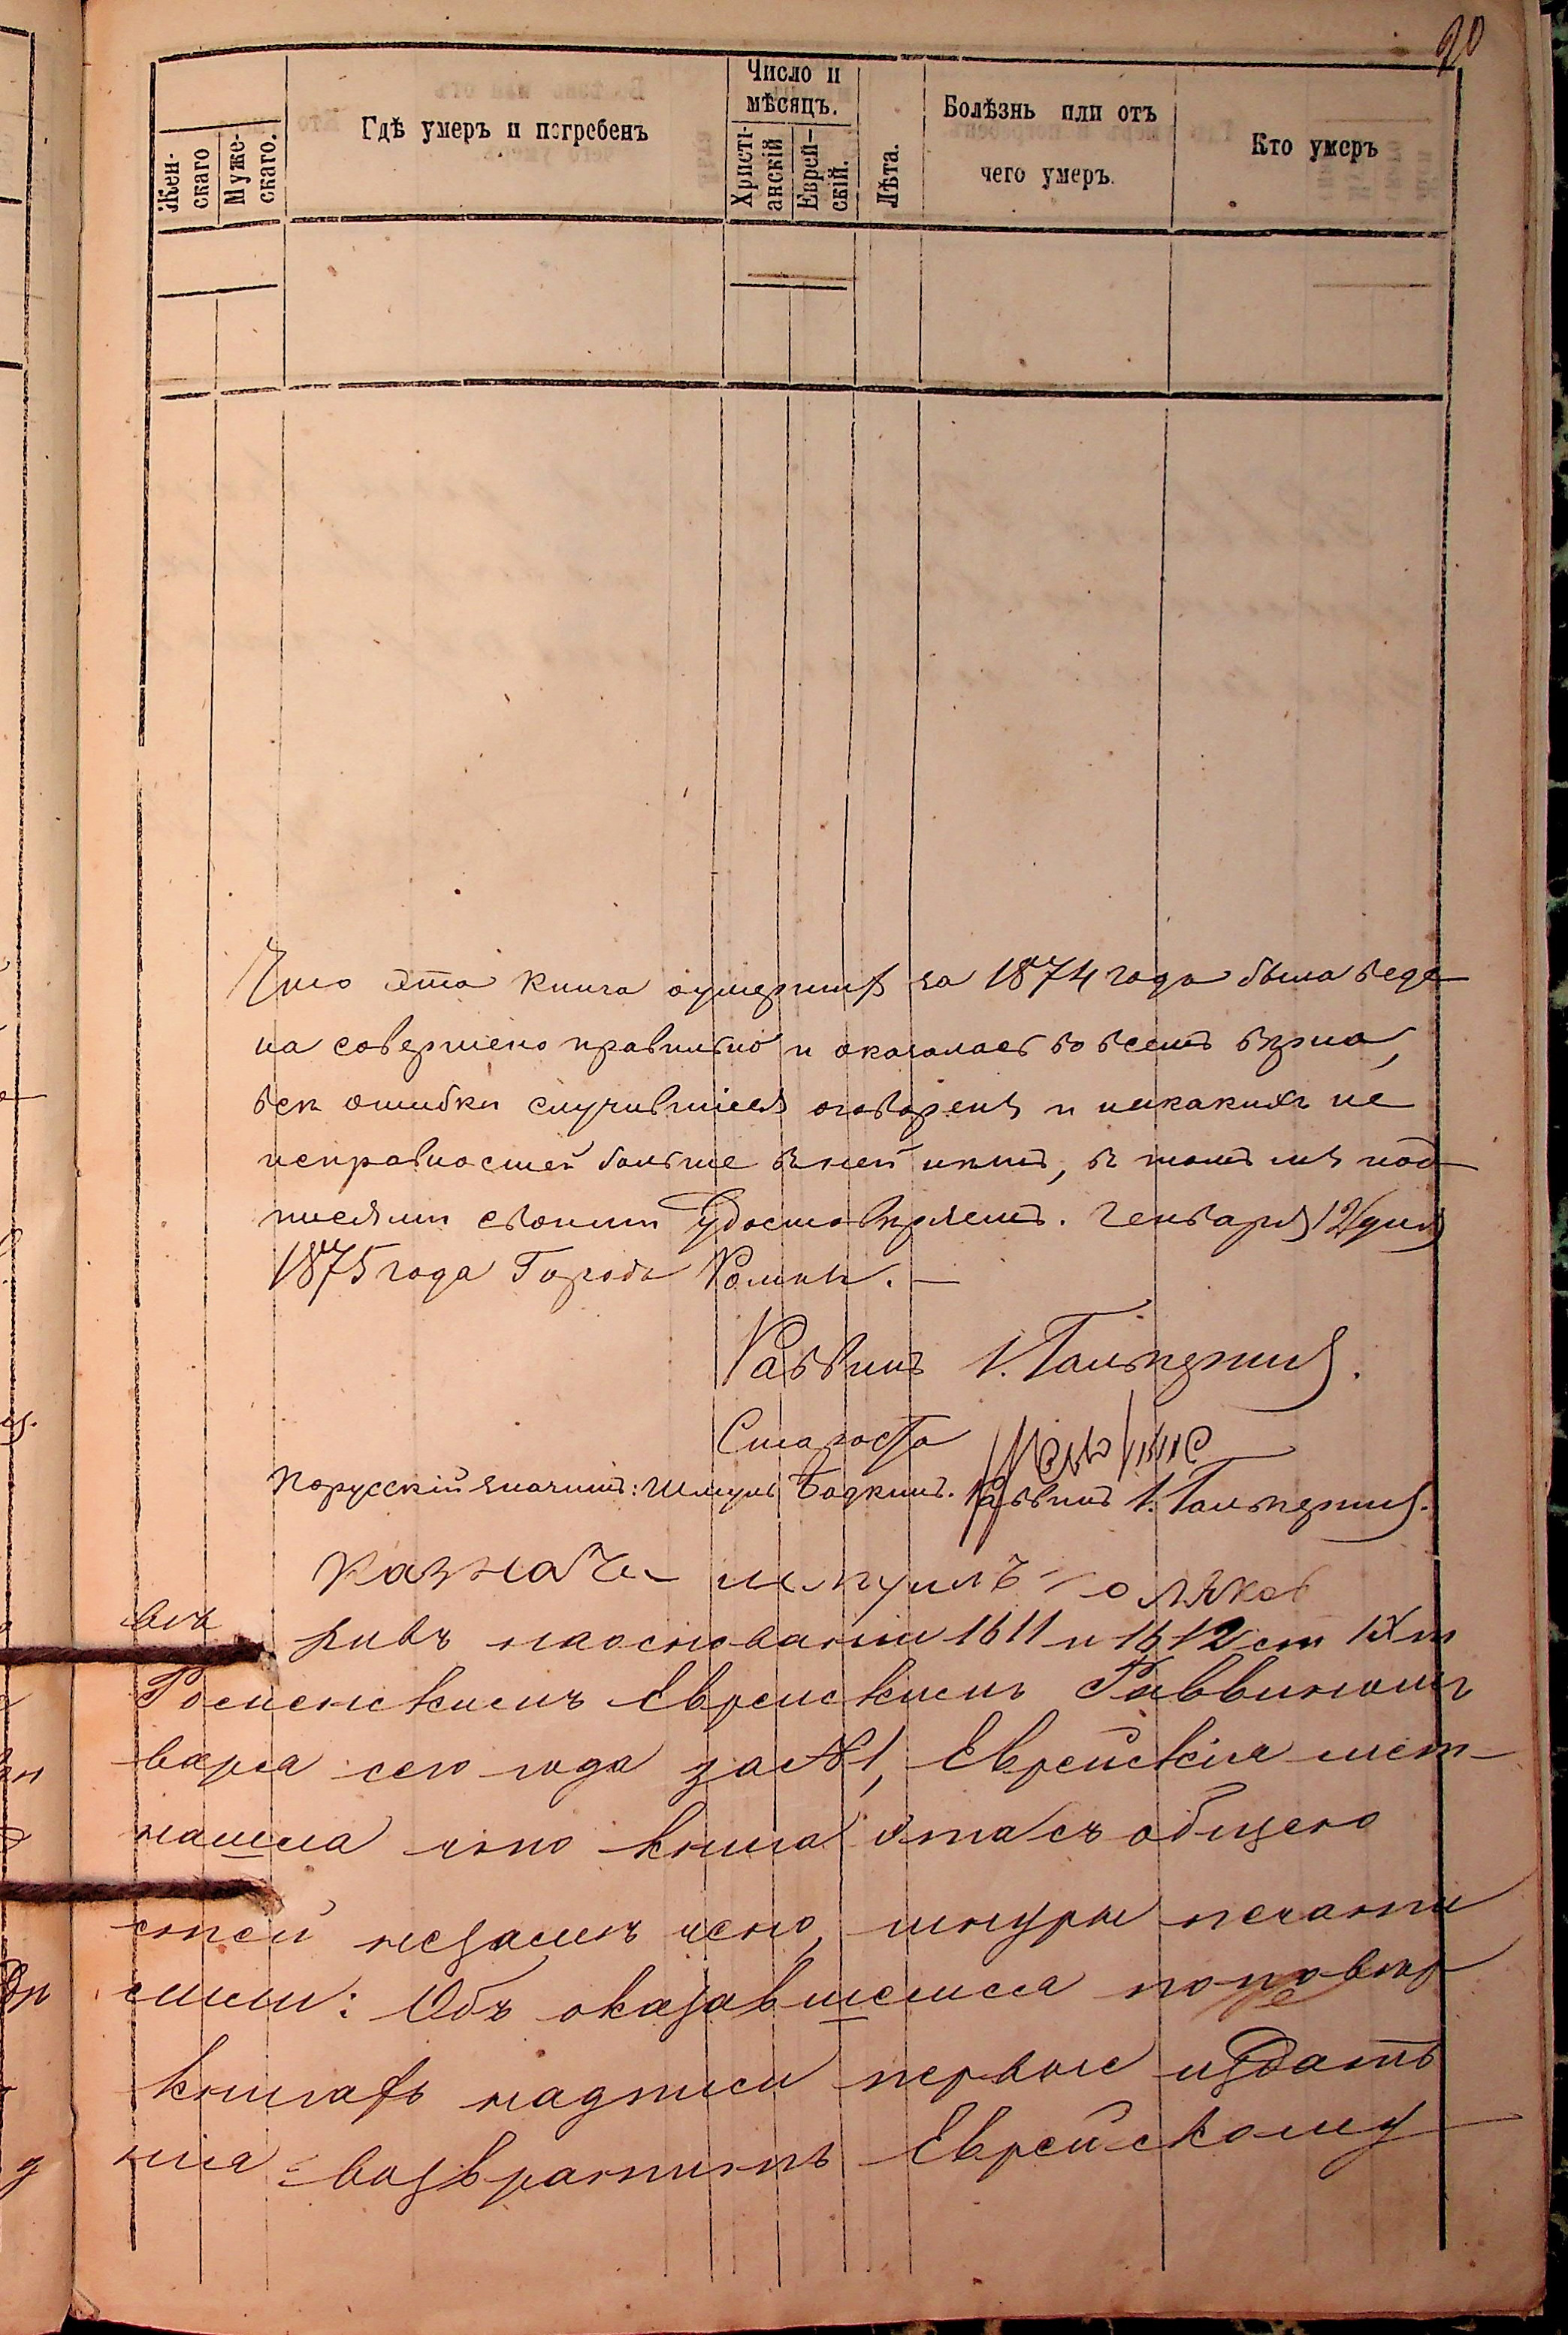 90
Жен-
скаго
Муже-
скаго.
Гдѣ умеръ и погребенъ
Число и
мѣсяцъ.
Христі-
анскій
Еврей-
скій.
Лѣта.
Болѣзнь или отъ
чего умеръ.
Кто умеръ
Что эта книга оумершихъ за 1874 года была веде
на совершено правильно и оказалась во всемъ вѣрна,
всѣ ошибки случившіеся оговорены и никакихъ не
исправностей больше въ ней нѣтъ, въ томъ мы под
писями своими Удостовѣряемъ. Генваря 12 дня
1875 года Городъ Ромны. —
Раввинъ І. Гальперинъ.
Староста
Порусскій значитъ: Шмуль Бодкинъ. Раввинъ І. Гальперинъ.
Казначе
ривъ наоснованіи 1611 и 1612 ст IX т
Роменскимъ Еврейскимъ Раввиномъ
варя сего года за № 1, Еврейскія мет-
нашла что книга эта съ общею
стей незамѣчено, шнуры печати
сіми: Объ оказавшемся поповѣр
книгахъ надписи первые издать
нія возвратить Еврейскому